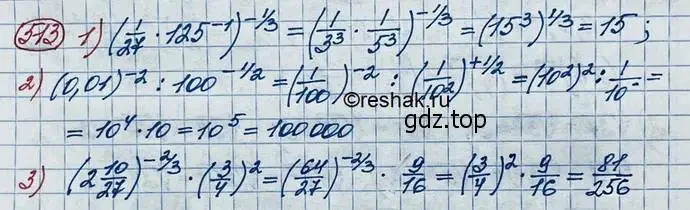 513 1) (1/27 · 125⁻¹)^(-1/3) = (1/3³ · 1/5³)^(-1/3) = (15³)^(1/3) = 15;
2) (0,01)⁻² : 100^(-1/2) = (1/100)⁻² : (1/10²)^(+1/2) = (10²)² : 1/10 =
©reshak.ru
= 10⁴ · 10 = 10⁵ = 100000
gdz.top
3) (2 10/27)^(-2/3) · (3/4)² = (64/27)^(-2/3) · 9/16 = (3/4)² · 9/16 = 81/256